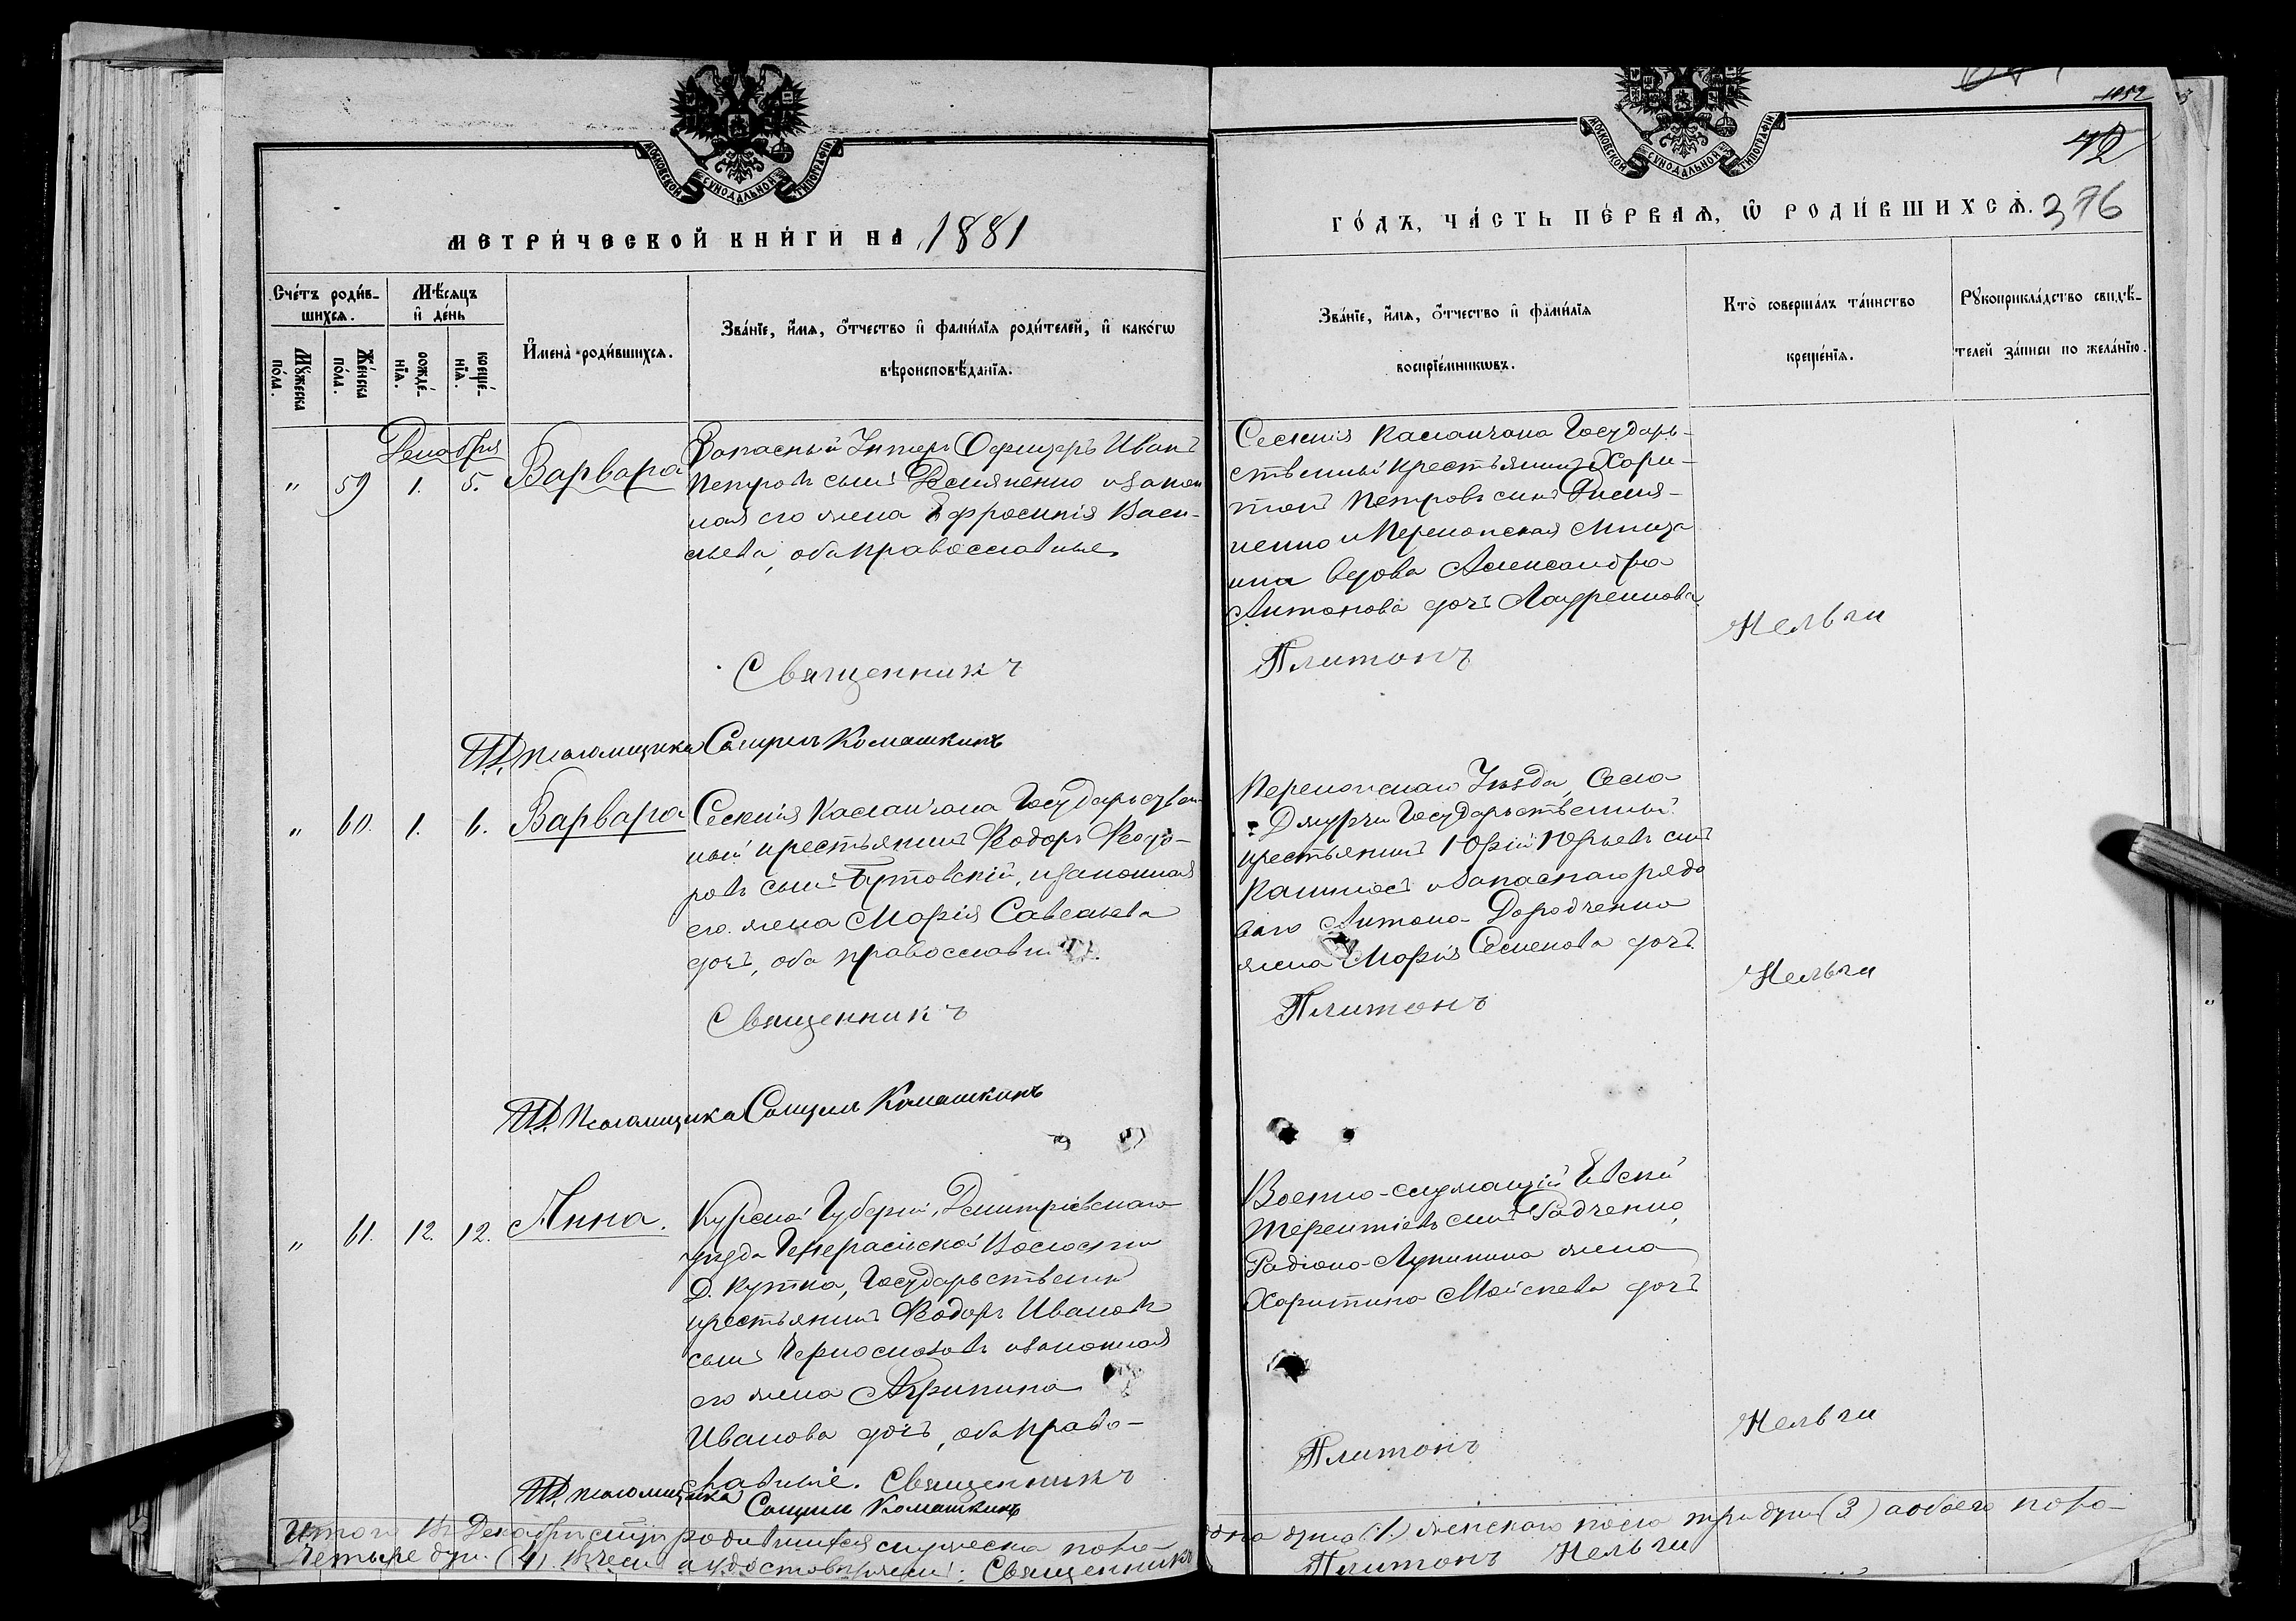 МОСКОВСКОЙ СѴНОДАЛЬНОЙ ТИПОГРАФІИ
МЕТРИ́ЧЕСКОЙ КНИ́ГИ НА 1881
Сче́тъ роди́в-
шихсѧ.
Мѣ́сѧцъ
и҆ де́нь
Мꙋ́жеска
по́ла.
Же́нска
по́ла.
рожде́-
нїѧ.
креще́-
нїѧ.
И҆мена̀ роди́вшихсѧ.
Зва́нїе, и҆́мѧ, ѻ҆́тчество и҆ фами́лїѧ роди́телей, и҆ како́гѡ
вѣроисповѣ́данїѧ.
Декабря
" 59 1. 5. Варвара
Запасный Унтеръ Офицеръ Иванъ
Петровъ сынъ и закон
ная его жена Ефросинія Васи-
льева, оба православные
Священникъ
И.Д. Псаломщика Комашкинъ
" 60. 1. 6. Варвара
Селенія Каланчака Государствен-
ный крестьянинъ Ѳеодоръ Ѳеодо-
ровъ сынъ Бутовскій, и законная
его жена Марія Савельева
дочь, оба православн
Священникъ
И.Д. Псаломщика Комашкинъ
" 61. 12. 12. Анна.
Курской Губерніи, Дмитріевскаго
уѣзда Волости
Д. Кутка, Государственный
крестьянинъ Ѳеодоръ Ивановъ
сынъ и законная
его жена Агрипина
Иванова дочь, оба право-
славные. Священникъ
И.Д. Псаломщика
Комашкинъ
Итого въ Декабрѣ родившихся мужеска пола
четыре душ. (4). Священникъ
1052
42
ГО́ДЪ, ЧА́СТЬ ПЕ́РВАѦ, Ѡ҆ РОДИ́ВШИХСѦ. 376
Зва́нїе, и҆́мѧ, ѻ҆́тчество и҆ фами́лїѧ
воспрїе́мникѡвъ.
Кто̀ соверша́лъ та́инство
креще́нїѧ.
Рꙋкоприкла́дство свидѣ́-
телей за́писи по жела́нїю.
Селенія Каланчака Государ-
ственный крестьянинъ Хари-
тонъ Петровъ сынъ
и Перекопская Мѣща
нка вдова Александра
Антонова дочь
Платонъ Нельги
Перекопскаго Уѣзда, Села
Государственный
крестьянинъ Юрій Юрьевъ сынъ
и запаснаго рядо
ваго Антона
жена Марія Семенова дочь
Платонъ Нельги
Военно-служащій
Терентіевъ сынъ Радченко,
Радіона жена
Харитина Моисеева дочь
Платонъ Нельги
одна душа (1.) женскаго пола три душ (3) а обоего пола
Платонъ Нельги